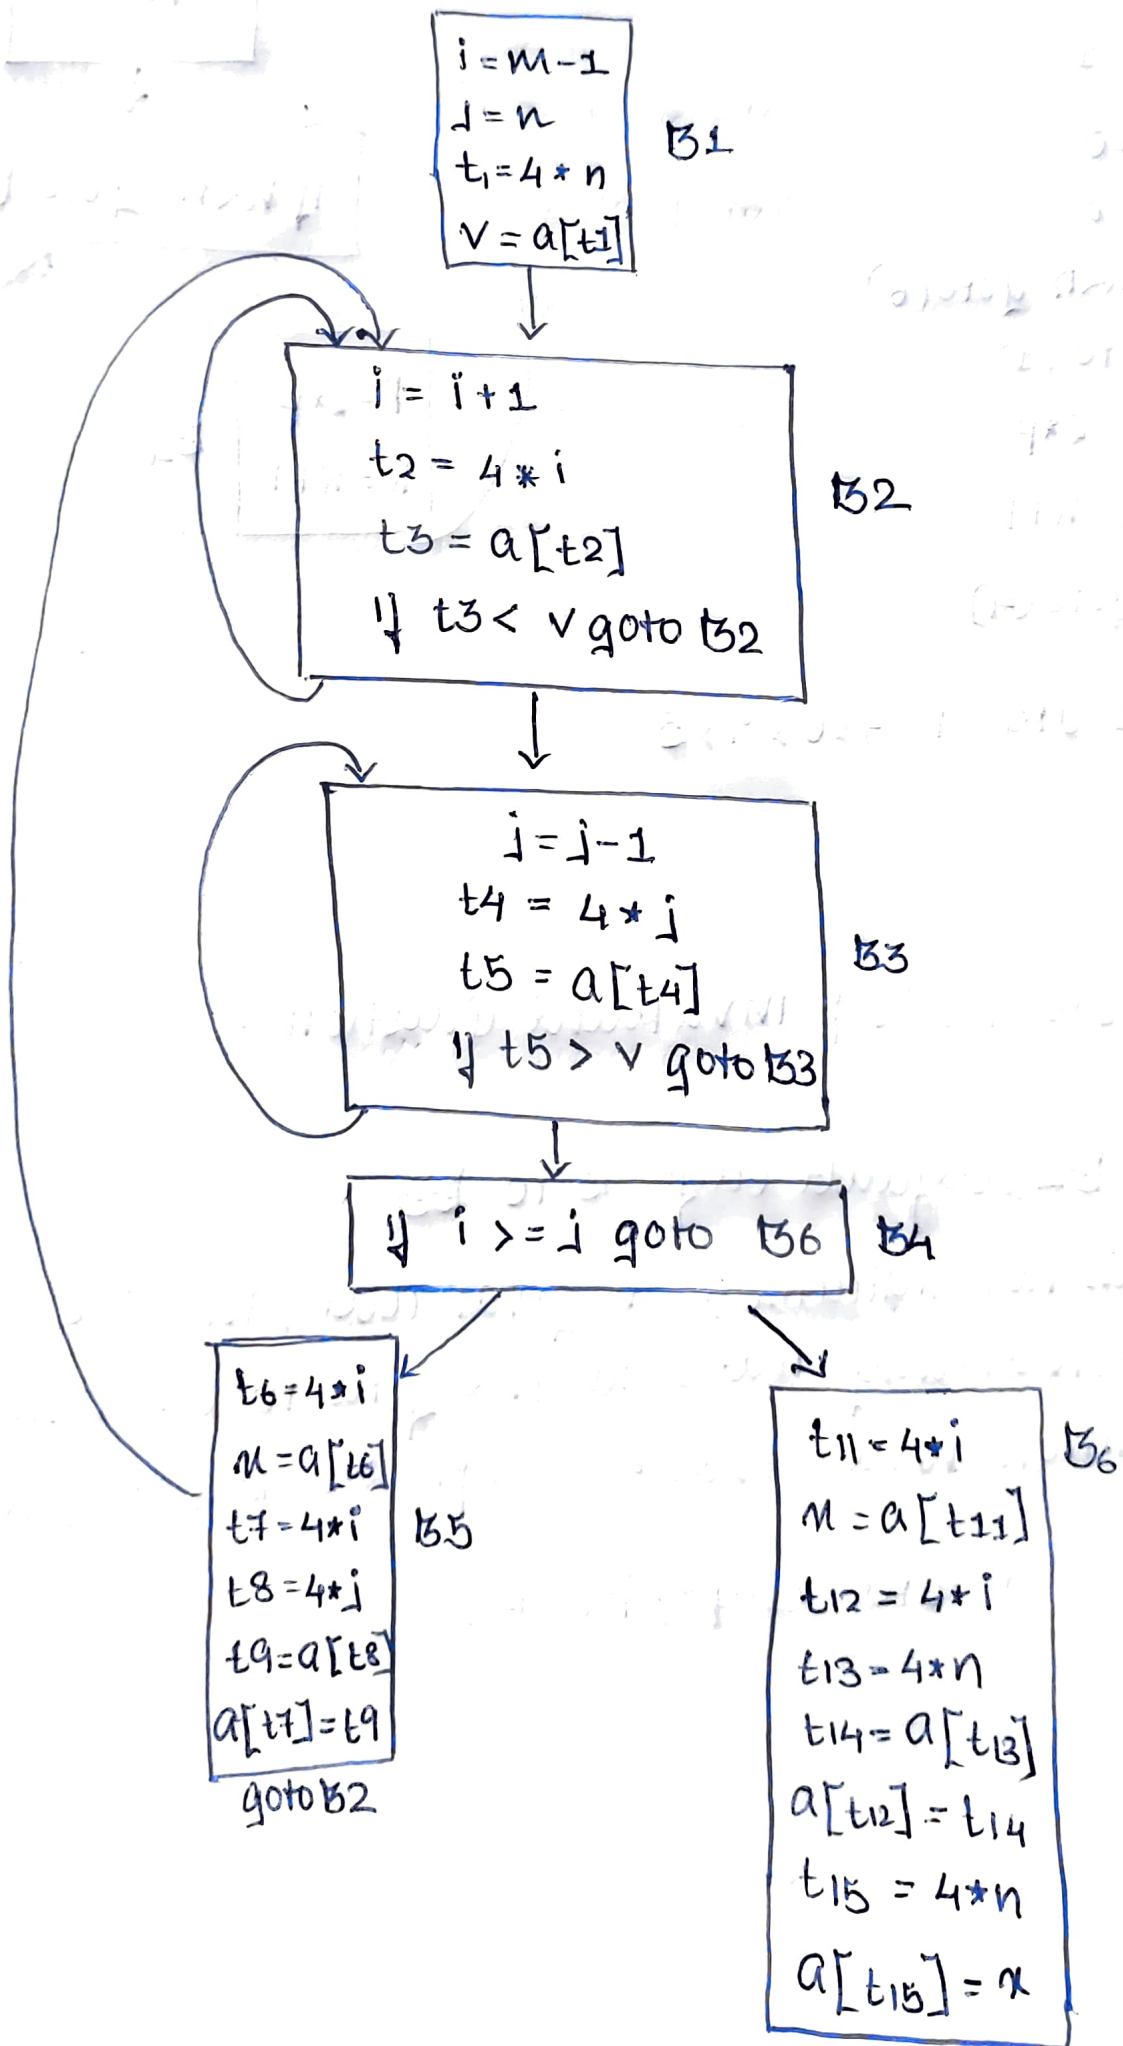 i = m-1
j = n
t1 = 4 * n
v = a[t1]
B1
i = i + 1
t2 = 4 * i
t3 = a[t2]
if t3 < v goto B2
B2
j = j - 1
t4 = 4 * j
t5 = a[t4]
if t5 > v goto B3
B3
if i >= j goto B6
B4
t6 = 4 * i
x = a[t6]
t7 = 4 * i
t8 = 4 * j
t9 = a[t8]
a[t7] = t9
goto B2
B5
t11 = 4 * i
x = a[t11]
t12 = 4 * i
t13 = 4 * n
t14 = a[t13]
a[t12] = t14
t15 = 4 * n
a[t15] = x
B6